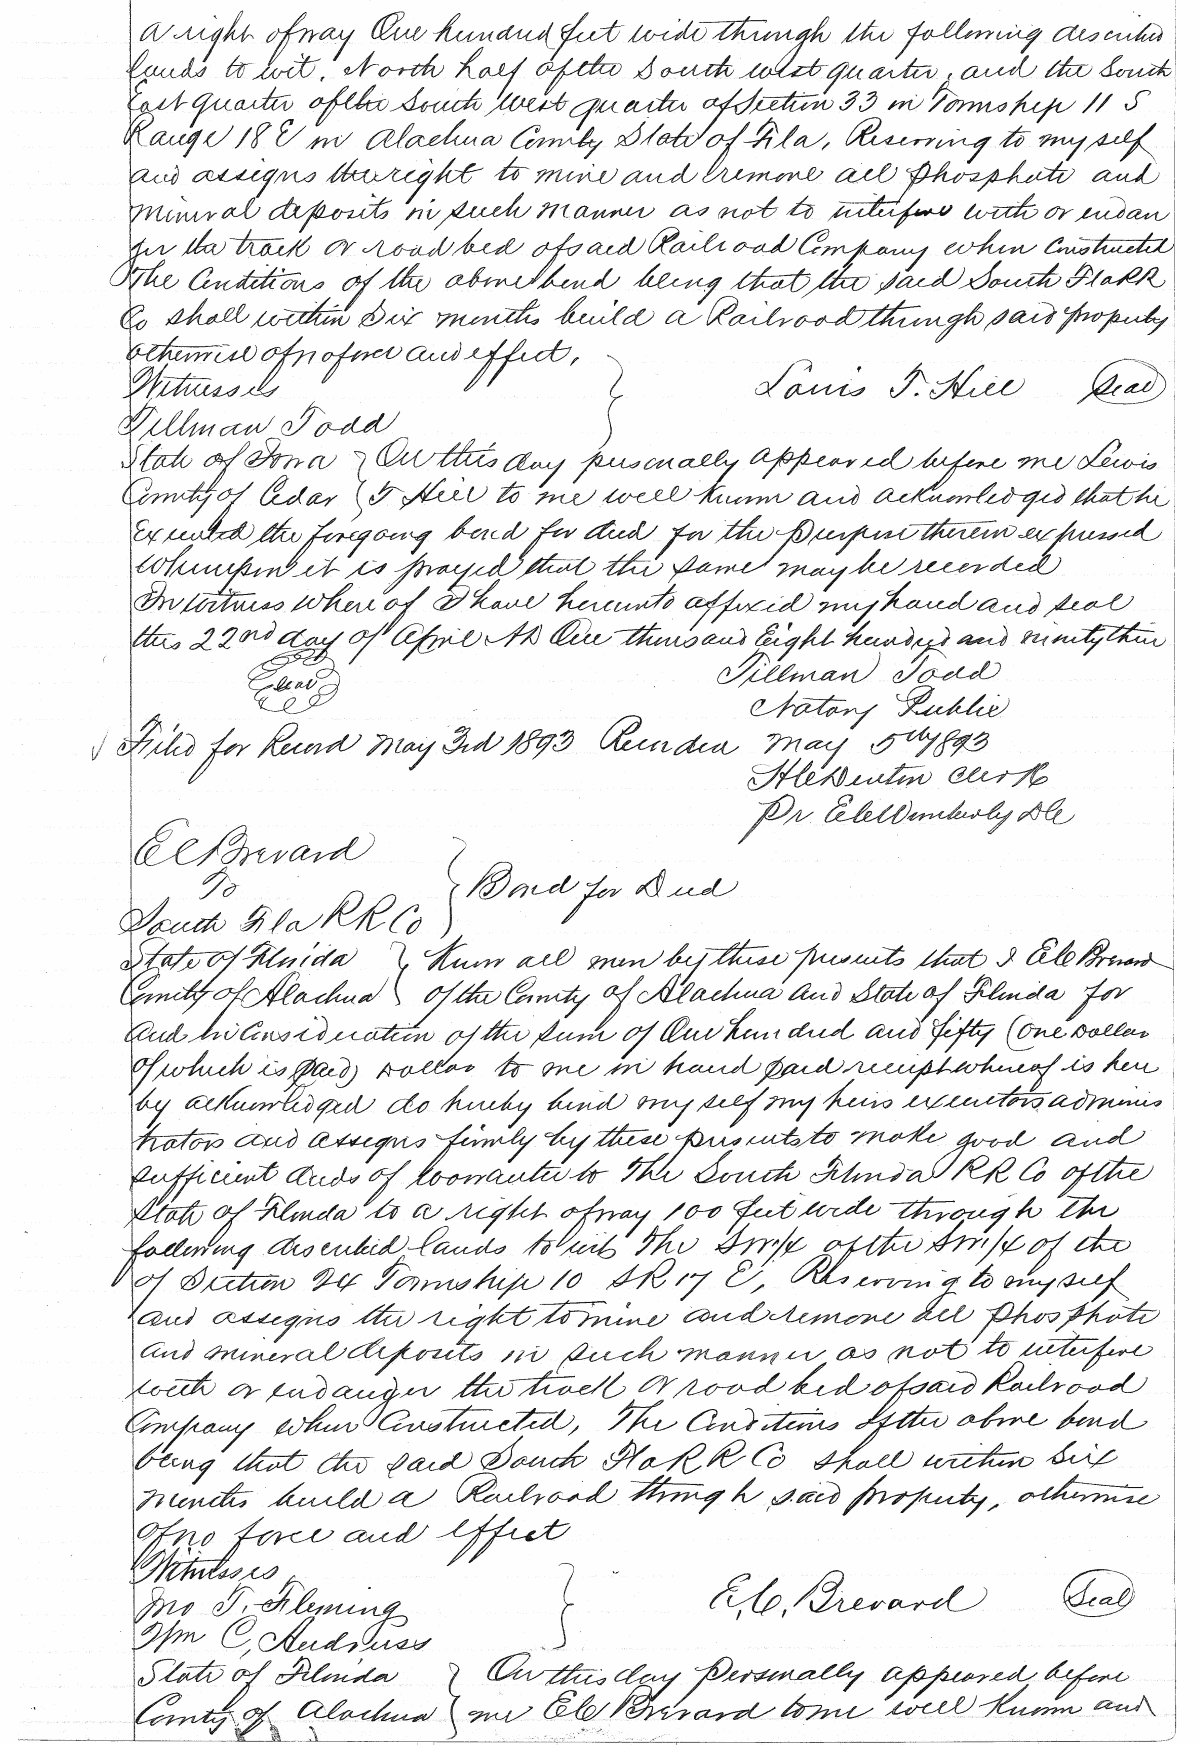 a right of way One hundred feet wide through the following described
lands to wit, North half of the South west quarter, and the South
East quarter of the South West quarter of Section 33 in Township 11 S
Range 18 E in Alachua County State of Fla, Reserving to my self
and assigns the right to mine and remove all Phosphate and
mineral deposits in such manner as not to interfere with or endan
ger the track or road bed of said Railroad Company when Constructed
The Conditions of the above bond being that the said South Fla RR
Co shall within Six months build a Railroad through said property
otherwise of no force and effect,
Witnesses Louis T. Hill Seal
Tillman Todd
State of Iowa } On this day personally appeared before me Lewis
County of Cedar } T Hill to me well Known and acknowledged that he
Executed the foregoing bond for deed for the Purpose therein expressed
Whereupon it is prayed that the same may be recorded
In witness where of I have hereunto affixed my hand and seal
this 22nd day of April AD One thousand Eight hundred and ninety three
Seal Tillman Todd
Notary Public
Filed for Record May 3rd 1893 Recorded May 5th 1893
H C Denton Clerk
Pr. E C Wimberly DC
E C Brevard
To } Bond for Deed
South Fla RR Co
State of Florida } Know all men by these presents that I E C Brevard
County of Alachua } of the County of Alachua and State of Florida for
and in Consideration of the sum of One hundred and fifty (one Dollar
of which is paid) Dollar to me in hand paid receipt whereof is here
by acknowledged do hereby bind my self my heirs executors adminis
trators and assigns firmly by these presents to make good and
sufficient deeds of warrantee to The South Florida RR Co of the
State of Florida to a right of way 100 feet wide through the
following described lands to wit The SW1/4 of the SW1/4 of the
of Section 24 Township 10 S R 17 E, Reserving to my self
and assigns the right to mine and remove all Phosphate
and mineral deposits in such manner as not to interfere
with or endanger the track or road bed of said Railroad
Company when Constructed, The Conditions of the above bond
being that the said South Fla RR Co shall within Six
months build a Railroad through said property, otherwise
of no force and effect
Witnesses
Jno T. Fleming E, C, Brevard Seal
Wm C, Andruss
State of Florida } On this day Personally appeared before
County of Alachua } me E C Brevard to me well Known and